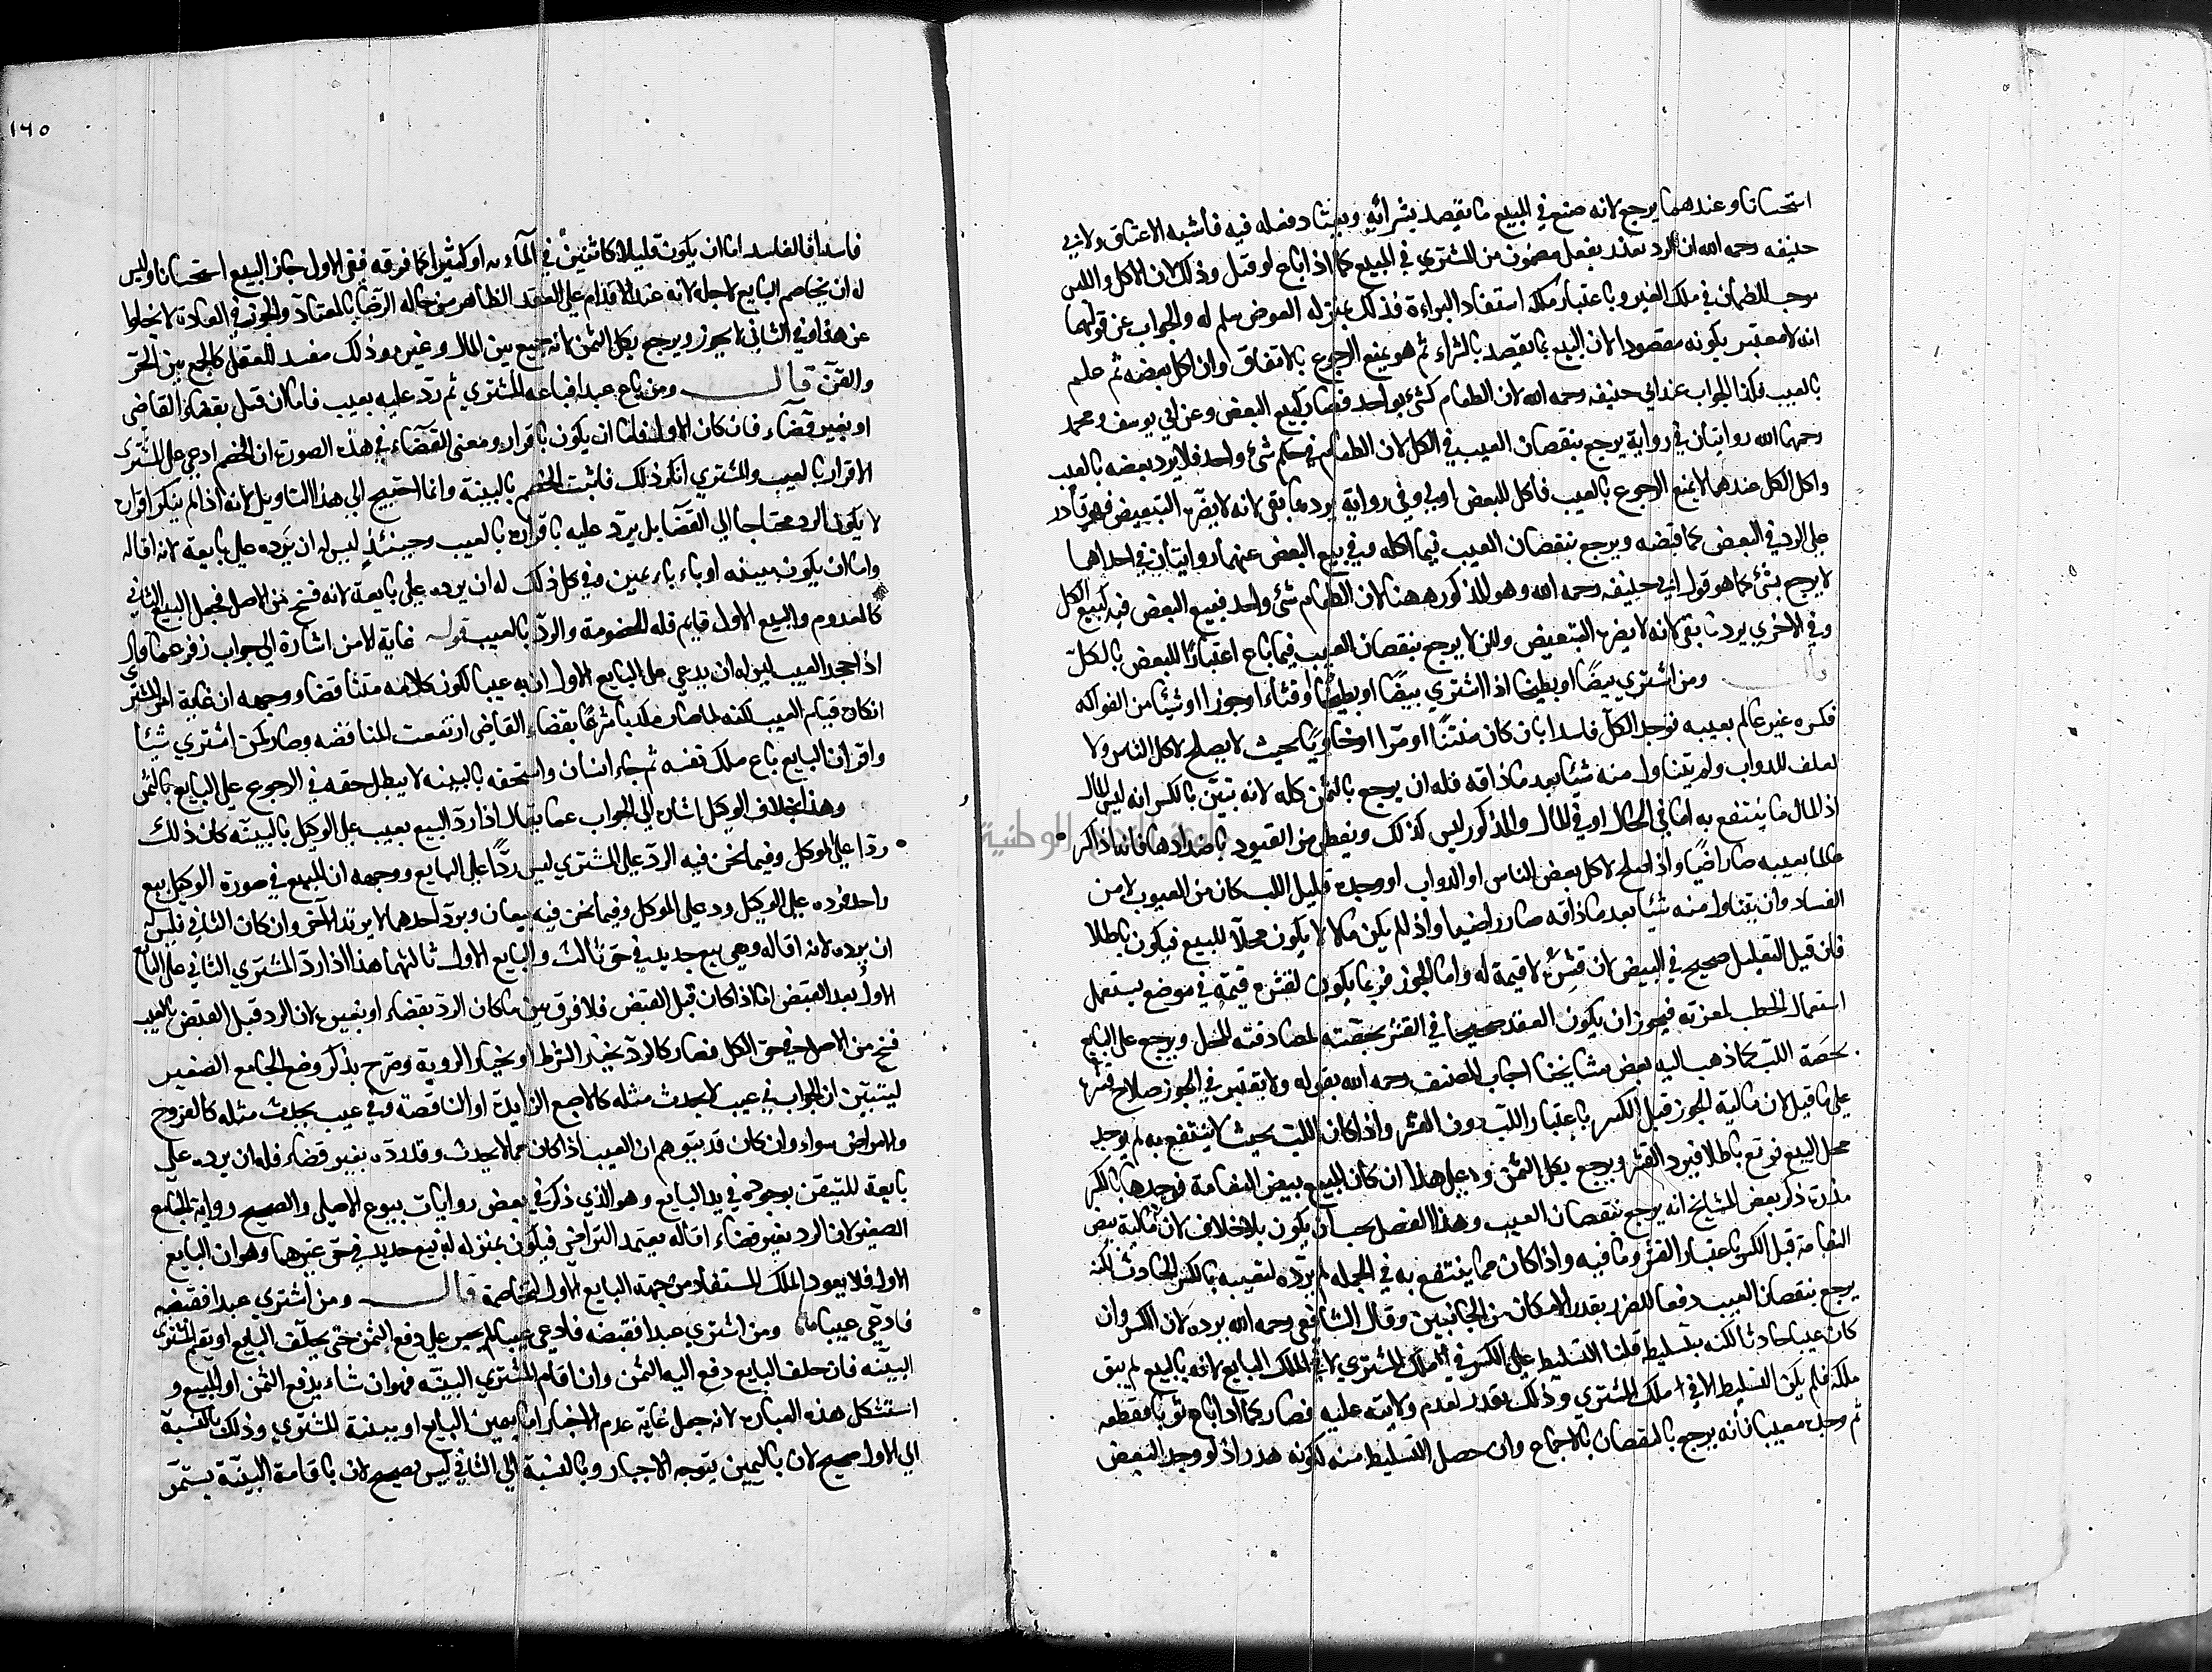 استحسانا وعندهما يرجع لانه صنع في المبيع ما يقصد بشرائه ويعتاد فعله فيه فاشبه الاعتاق ولابي
حنيفه رحمه الله ان الرد تعذر بفعل مضمون من المشتري في المبيع كما اذا باع او قتل وذلك لان الاكل واللبس
موجب للضمان في ملك الغير وباعتبار ملكه استفاد البراءة فذلك بمنزله العوض سلم له والجواب عن قولهما
انه لا معتبر بكونه مقصودا لان البيع مما يقصد بالشراء ثم هو يمنع الرجوع بالاتفاق وان اكل بعضه ثم علم
بالعيب فكذا الجواب عند ابي حنيفه رحمه الله لان الطعام كشئ واحد فصار كبيع البعض وعن ابي يوسف ومحمد
رحمهما الله روايتان في رواية يرجع بنقصان العيب في الكل لان الطعام في حكم شئ واحد فلا يرد بعضه بالعيب
واكل الكل عندهما لا يمنع الرجوع بالعيب فاكل للبعض اولى وفي رواية يرد ما بقي لانه لا يضره التبعيض فهو قادر
على الرد في البعض كما قبضه ويرجع بنقصان العيب فيما اكله وفي بيع البعض عنهما روايتان في احداهما
لا يرجع بشئ كما هو قول ابي حنيفه رحمه الله وهو المذكور ههنا لان الطعام شئ واحد فبيع البعض فيه كبيع الكل
وفي الاخري يرد ما بقي لانه لا يضره التبعيض ولكن لا يرجع بنقصان العيب فيما باع اعتبارًا للبعض بالكل
قال ومن اشتري بيضًا او بطيخا اذا اشتري بيضًا او بطيخًا او قثاء او جوزا او شيئا من الفواكه
فكسره غير عالم بعيبه فوجد الكل فاسدا بان كان منتنًا او مرّا او خاويًا بحيث لا يصلح لاكل الناس ولا
لعلف الدواب ولم يتناول منه شيئا بعد ما ذاقه فله ان يرجع بالثمن كله لانه تبيّن بالكسر انه ليس بمال
اذ المال ما ينتفع به اما في الحال او في المآل والمذكور ليس كذلك ويفطن من القيود باضدادها فانه اذا كسر
عالما بعيبه صار راضيًا واذا صلح لاكل بعض الناس او الدواب او وجده قليل اللب كان من العيوب لا من
الفساد وان تناول منه شيئا بعد ما ذاقه صار راضيا واذا لم يكن مالا لا يكون محلّا للبيع فيكون باطلا
فان قيل التعليل صحيح في البيض لان قشره لا قيمة له واما الجوز فربما يكون لقشره قيمة في موضع يستعمل
استعمال الحطب لعزته فيجوز ان يكون العقد صحيحا في القشر بحصّته لمصادفته المحل ويرجع على البايع
بحصّة اللب كما ذهب اليه بعض مشايخنا اجاب المصنف رحمه الله بقوله ولا يعتبر في الجوز صلاح قشره
على ما قيل لان مالية الجوز قبل الكسر باعتبار اللب دون القشر واذا كان اللب بحيث لا ينتفع به لم يوجد
محل البيع فوقع باطلا فيرد القشر ويرجع بكل الثمن وعلى هذا ان كان المبيع بيض النعامة فوجدها بالكسر
مذرة ذكر بعض المشايخ انه يرجع بنقصان العيب وهذا الفصل يجب ان يكون بلا خلاف لان مالية بيض
النعامة قبل الكسر باعتبار القشر وما فيه واذا كان مما ينتفع به في الجمله لم يردّه لتعيبه بالكسر الحادث لكنه
يرجع بنقصان العيب دفعا للضرر بقدر الامكان من الجانبين وقال الشافعي رحمه الله يرده لان الكسر وان
كان عيبا حادثا لكنه بتسليط قلنا التسليط على الكسر في ملك المشتري لا في ملك البايع لانه بالبيع لم يبق
ملكه فلم يكن التسليط الا في ملك المشتري وذلك هدر لعدم ولايته عليه فصار كما اذا باع ثوبا فقطعه
ثم وجده معيبا فانه يرجع بالنقصان بالاجماع وان حصل التسليط منه لكونه هدرا ولو وجد البعض
١٦٥
فاسدا فالفاسد اما ان يكون قليلا كاثنين في المآءه او كثيرا كما فرقه ففي الاول جاز البيع استحسانا وليس
له ان يخاصم البايع لاجله لانه عند الاقدام على العقد الظاهر من حاله الرضا بالمعتاد والجوز في العادة لا يخلوا
عن هذا وفي الثاني لا يجوز ويرجع بكل الثمن لانه جمع بين المال وغيره وذلك مفسد للعقد كالجمع بين الحر
والقنّ قال ومن باع عبدا فباعه المشتري ثم ردّ عليه بعيب فاما ان قبل بقضاء القاضي
او بغير قضآء فان كان الاول فاما ان يكون باقراره ومعنى القضآء في هذه الصورة ان الخصم ادعي على المشتري
الاقرار بالعيب والمشتري انكر ذلك فاثبت الخصم بالبينة وانما احتيج الى هذا التاويل لانه اذا لم ينكر اقراره
لا يكون الرد محتاجا الى القضآ بل يردّ عليه باقراره بالعيب وحينئذ ليس له ان يرده على بايعه لانه اقاله
واما ان يكون ببينه او باباء يمين وفي كل ذلك له ان يرده على بايعه لانه فسخ من الاصل فجعل البيع الثاني
كالمعدوم والبيع الاول قايم فله الخصومة والردّ بالعيب قوله غاية الامر اشارة الي جواب زفر عما قال
اذا جحد العيب ليس له ان يدعي على البايع الاول ان به عيبا لكون كلامه متناقضا ووجهه ان غاية امر المشتري
انكار قيام العيب لكنه لما صار مكذبا شرعًا بقضاء القاضي ارتفعت المناقضه وصار كمن اشتري شيئا
واقر ان البايع باع ملك نفسه ثم جاء انسان واستحقه بالبينه لا يبطل حقه في الرجوع على البايع بالثمن
وهذا بخلاف الوكيل اشاره الي الجواب عما يقال اذا ردّ المبيع بعيب على الوكيل بالبينه كان ذلك
ردّا على الموكل وفيما نحن فيه الردّ على المشتري ليس ردًّا على البايع ووجهه ان البيع في صورة الوكيل بيع
واحد فرده على الوكيل رد على الموكل وفيما نحن فيه بيعان وبردّ احدهما لا يرتد الآخر وان كان الثاني فليس له
ان يرده لانه اقاله وهي بيع جديد في حق ثالث والبايع الاول ثالثهما هذا اذا ردّ المشتري الثاني على البايع
الاول بعد القبض اما اذا كان قبل القبض فلا فرق بين ما كان الردّ بقضاء او بغيره لان الرد قبل القبض بالعيب
فسخ من الاصل في حق الكل فصار كالردّ بخيار الشرط او بخيار الروية وصرّح بذكر وضع الجامع الصغير
ليتبيّن ان الجواب في عيب لا يحدث مثله كالاصبع الزايدة او الناقصة وفي عيب يحدث مثله كالقروح
والامراض سواء وان كان قد يتوهم ان العيب اذا كان مما لا يحدث وقد ردّه بغير قضاء فله ان يرده على
بايعه للتيقن بوجوده في يد البايع وهو الذي ذكر في بعض روايات بيوع الاصل والصحيح رواية الجامع
الصغير لان الرد بغير قضاء اقاله يعتمد التراضي فيكون بمنزله البيع جديد في حق غيرهما وهو ان البايع
الاول فلا يعود الملك المستفاد من جهة البايع الاول للمخاصمة قال ومن اشتري عبدا فقبضه
فادّعي عيبا ومن اشتري عبدا فقبضه فادعي عيبا لم يجبر على دفع الثمن حتى يحلف البايع او يقيم المشتري
البينّه فان حلف البايع دفع اليه الثمن وان اقام المشتري البيّنه فهو ان شاء يدفع الثمن او المبيع و
استشكل هذه العبارة لانه جعل غاية عدم الاجبار اما يمين البايع او ببينة المشتري وذلك بالنسبة
الي الاول صحيح لان باليمين يتوجه الاجبار وبالنسبة الي الثاني ليس بصحيح لان باقامة البيّنه يستمرّ